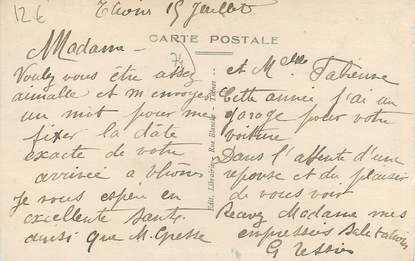 12€
15 Juillet
CARTE POSTALE
(74)
Madame -
Voulez vous être assez
aimable et m envoyer
un mot pour me
fixer la dâte
exacte de votre
arrivée a
Je vous espère en
excellente Santé
ainsi que M.
Edit. Librairie, Rue Blanche
et Melle Fabienne
Cette année j'ai un
garage pour votre
voiture
Dans l'attente d'une
reponse et du plaisir
de vous voir
Recevez Madame mes
empressés Salutations
G